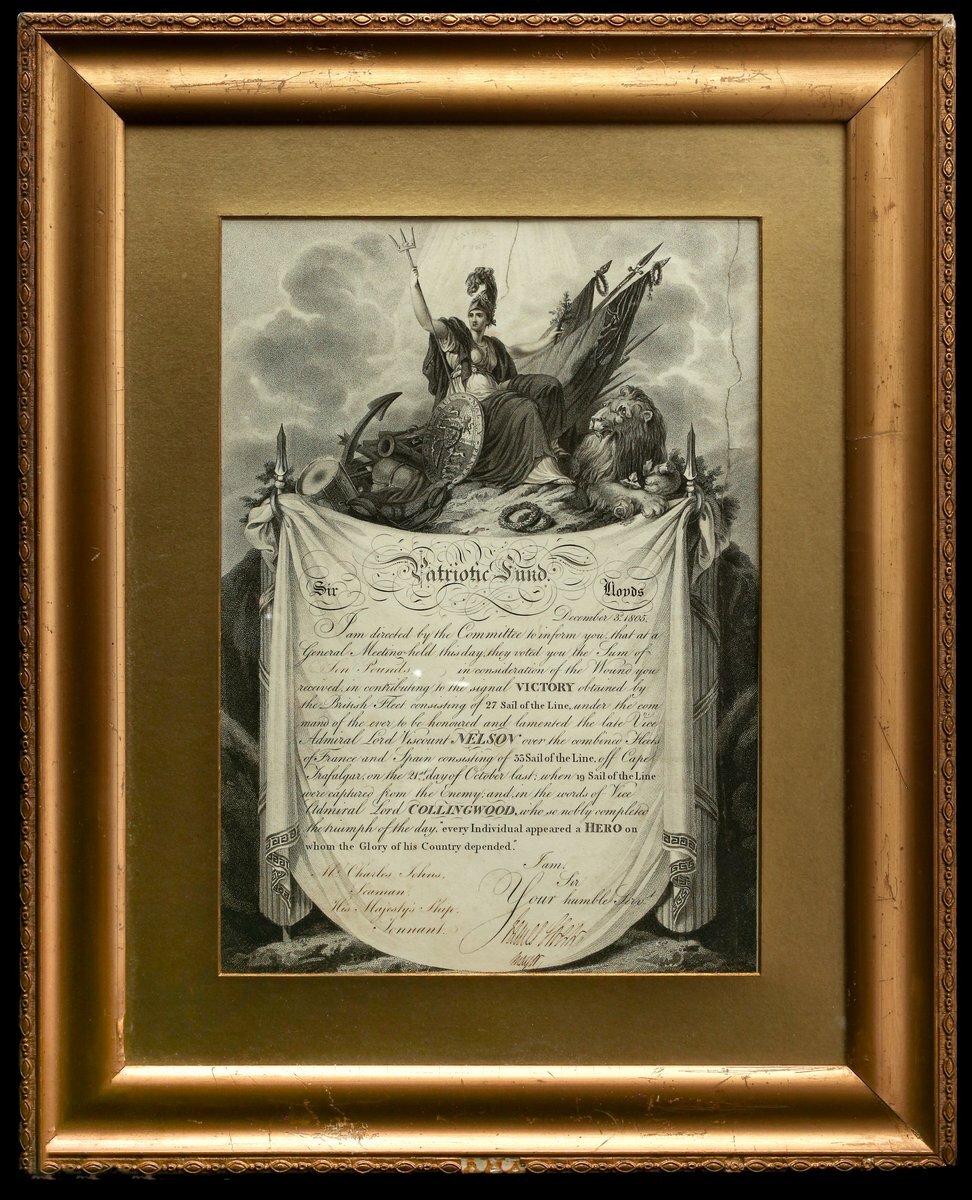 Patriotic Fund.
Sir Lloyds
December 3d. 1805.
I am directed by the Committee to inform you, that at a
General Meeting held this day, they voted you the Sum of
Ten Pounds in consideration of the Wound you
received, in contributing to the signal VICTORY obtained by
the British Fleet consisting of 27 Sail of the Line, under the com
mand of the ever to be honoured and lamented the late Vice
Admiral Lord Viscount NELSON over the combined Fleets
of France and Spain consisting of 33 Sail of the Line, off Cape
Trafalgar, on the 21st. day of October last; when 19 Sail of the Line
were captured from the Enemy; and, in the words of Vice
Admiral Lord COLLINGWOOD, who so nobly completed
the triumph of the day, "every Individual appeared a HERO on
whom the Glory of his Country depended."
I am,
Sir
Mr. Charles Johns,
Seaman,
His Majesty's Ship,
Tonnant.
Your humble Servt.